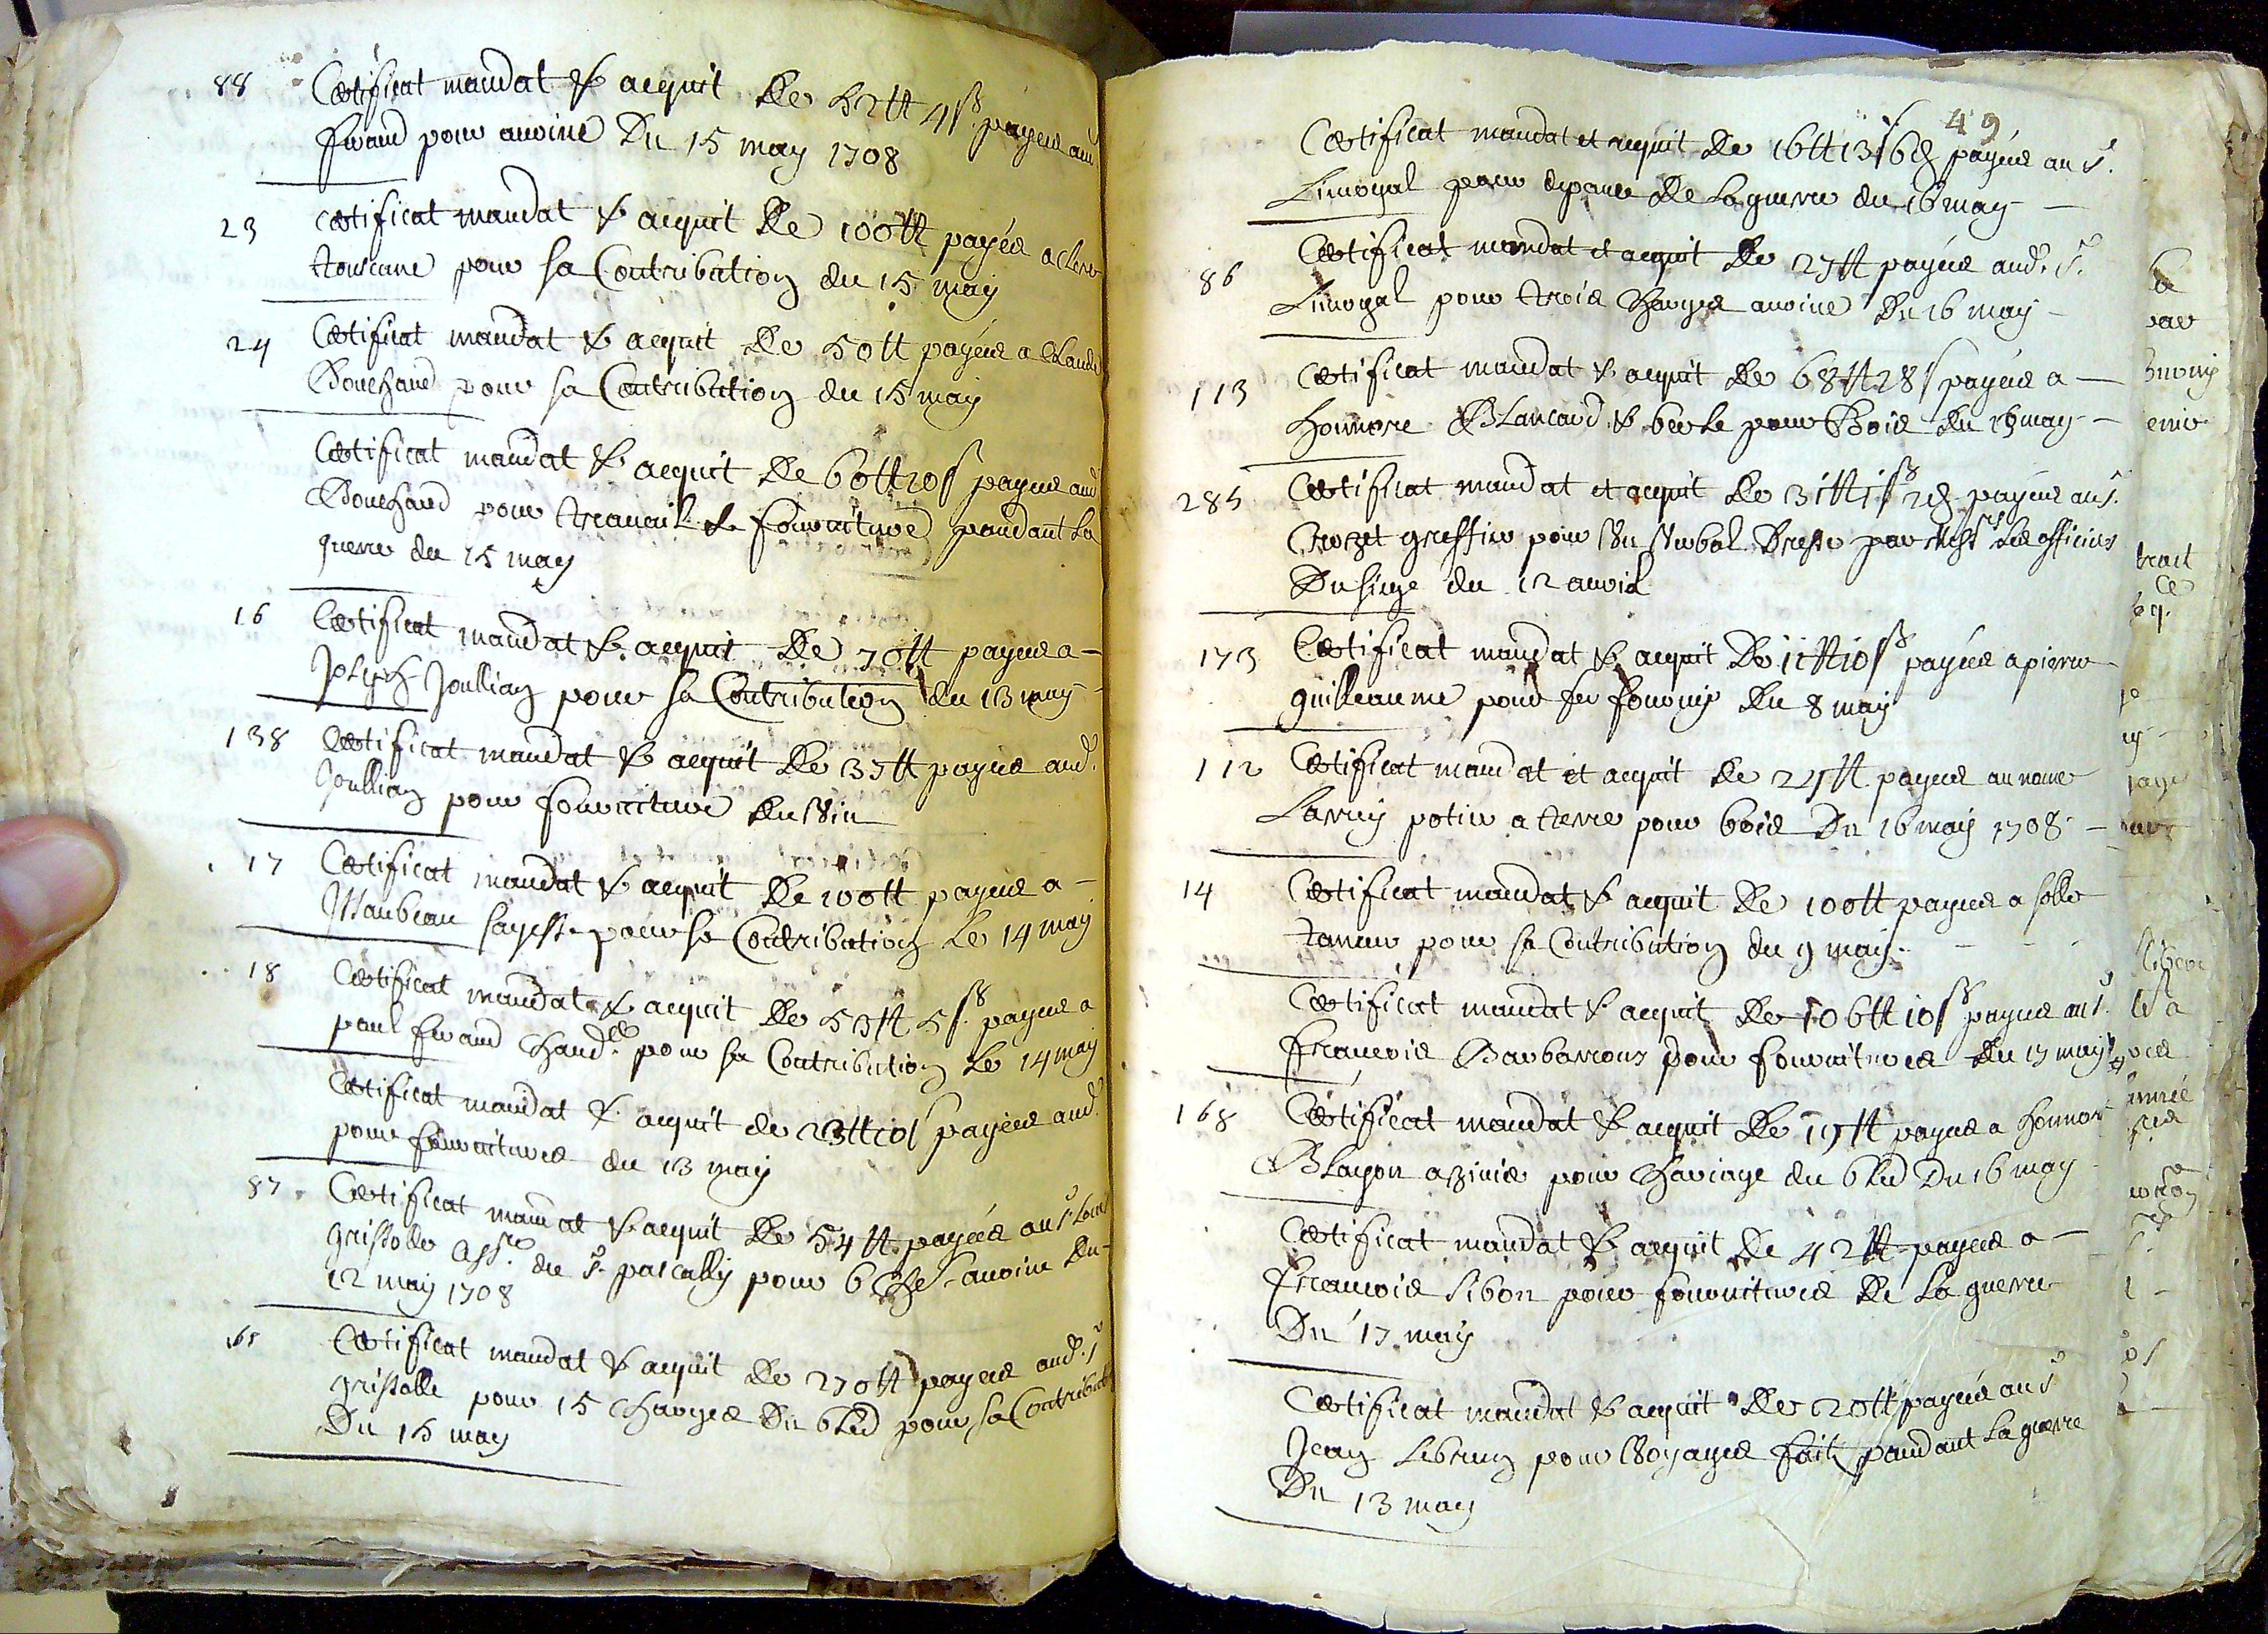 88 Certificat mandat & acquit de 52tt 4s payees aud
ferand pour avoine Du 15 may 1708
23 certificat mandat & acquit de 100tt payées a
pour sa Contribution du 15 may
24 Certificat mandat & acquit de 50tt payées a Claude
Bouchard pour sa Contribution du 15 may
Certificat mandat & acquit de 60tt 10s payees aud
Bouchard pour travail & fourniture pandant la
guerre du 15 may
16 Certificat mandat & acquit de 70tt payees a
Joseph Jullian pour sa Contribution du 13 may
138 Certificat mandat & acquit de 37tt payees aud.
Joullian pour fourniture du Vin
17 Certificat mandat & acquit de 100tt payees a
sagesse pour sa Contribution Le 14 may
18 Certificat mandat & acquit de 53tt 5s. payees a
paul ferand pour sa Contribution Le 14 may
Certificat mandat & acquit de 23tt 10s payées aud.
pour fournitures du 13 may
87 Certificat mandat & acquit de 54tt payées au s. Louis
grissolle asso. du s. pascally pour 6 avoine du
12 may 1708
Certificat mandat & acquit de 270tt payees aud. s
grissolle pour 15 charges Du bled pour sa Contribut
Du 15 may
49
Certificat mandat et acquit de 16tt 13s 6d payées au s.
Limogal pour depance de la guerre du 16 may
86 Certificat mandat et acquit de 27tt payées aud. s.
Limogal pour trois charges avoine Du 16 may
113 certificat mandat & acquit de 68tt 28s payées a
honnore Blancard & pour Bois du 15 may
285 Certificat mandat et acquit de 31tt 1s 2d payées au s.
Crozet greffier pour Un Verbal Dressé par les officiers
Du siege du 12 avril
173 Certificat mandat & acquit de 11tt 10s payées a pierre
guilleaume pour fer fourny Du 8 may
112 Certificat mandat et acquit de 24tt payees au nomé
Lavery potier a terre pour bois Du 16 may 1708
14 Certificat mandat & acquit de 100tt payees a
taneur pour sa Contribution du 9 may.
Certificat mandat & acquit de 106tt 10s payees au s.
francois Barbarous pour fournitures du 17 may
168 Certificat mandat & acquit de 19tt payees a honnoré
Blayon pour chariage du bled Du 16 may
Certificat mandat & acquit de 42tt payees a
francois sibon pour fournitures de la guerre
Du 17 may
Certificat mandat & acquit de 20tt payées au s
Jean Lebrun pour Voyages fait pandant la guerre
Du 13 may